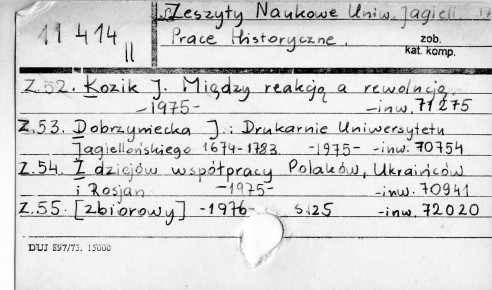 Zeszyty Naukowe Uniw. Jagiell.
11414 II
Prace Historyczne.
zob.
kat. komp.
Z.52. Kozik J. Między reakcją a rewolucją
-1975- -inw. 71275
Z.53. Dobrzyniecka J.: Drukarnie Uniwersytetu
Jagiellońskiego 1674-1783. -1975- -inw. 70754
Z.54. Z dziejów współpracy Polaków, Ukraińców
i Rosjan -1975- -inw. 70941
Z.55. [zbiorowy] -1976- s.125 -inw. 72020
DUJ 897/73. 15000